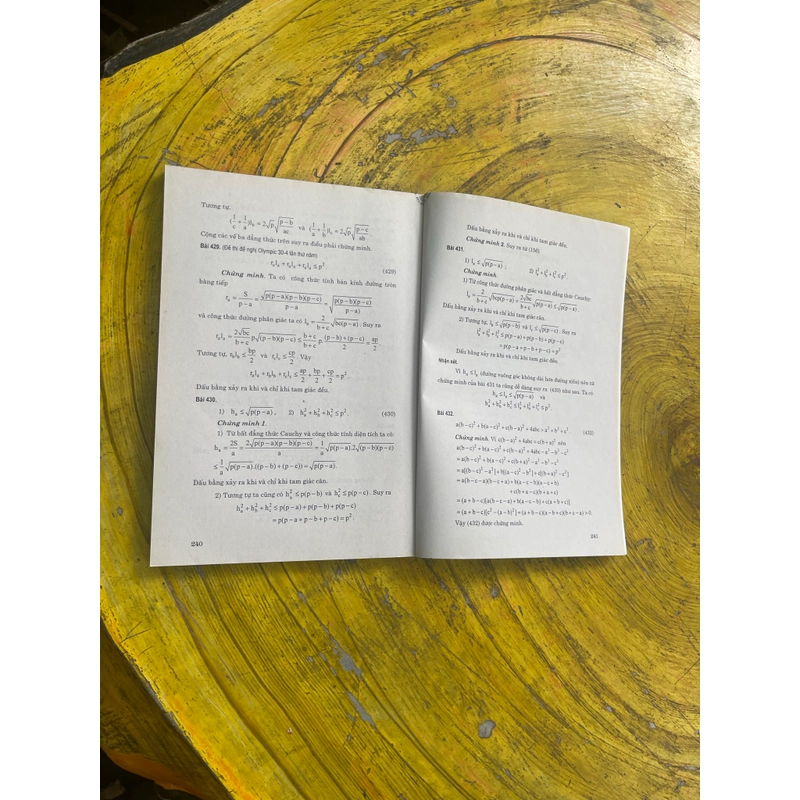 Tương tự,
(1/c + 1/a)l_b = 2√p √((p−b)/ac) và (1/a + 1/b)l_c = 2√p √((p−c)/ab)
Cộng các vế ba đẳng thức trên suy ra điều phải chứng minh.
Bài 429. (Đề thi đề nghị Olympic 30-4 lần thứ năm)
r_a l_a + r_b l_b + r_c l_c ≤ p². (429)
Chứng minh. Ta có công thức tính bán kính đường tròn
bàng tiếp
r_a = S/(p−a) = √(p(p−a)(p−b)(p−c))/(p−a) = √(p(p−b)(p−c)/(p−a))
và công thức đường phân giác ta có l_a = 2/(b+c) √(bc(p−a)). Suy ra
r_a l_a = 2√bc/(b+c) p√((p−b)(p−c)) ≤ (b+c)/(b+c) p ((p−b)+(p−c))/2 = ap/2
Tương tự, r_b l_b ≤ bp/2 và r_c l_c ≤ cp/2. Vậy
r_a l_a + r_b l_b + r_c l_c ≤ ap/2 + bp/2 + cp/2 = p².
Dấu bằng xảy ra khi và chỉ khi tam giác đều.
Bài 430.
1) h_a ≤ √(p(p−a)), 2) h_a² + h_b² + h_c² ≤ p². (430)
Chứng minh 1.
1) Từ bất đẳng thức Cauchy và công thức tính diện tích ta có:
h_a = 2S/a = 2√(p(p−a)(p−b)(p−c))/a = 1/a √(p(p−a)).2√((p−b)(p−c))
≤ 1/a √(p(p−a)).((p−b)+(p−c)) = √(p(p−a)).
Dấu bằng xảy ra khi và chỉ khi tam giác cân.
2) Tương tự ta cũng có h_b² ≤ p(p−b) và h_c² ≤ p(p−c). Suy ra
h_a² + h_b² + h_c² ≤ p(p−a) + p(p−b) + p(p−c)
= p(p−a+p−b+p−c) = p².
240
Dấu bằng xảy ra khi và chỉ khi tam giác đều.
Chứng minh 2. Suy ra từ (156)
Bài 431.
1) l_a ≤ √(p(p−a)); 2) l_a² + l_b² + l_c² ≤ p².
Chứng minh.
1) Từ công thức đường phân giác và bất đẳng thức Cauchy:
l_a = 2/(b+c) √(bcp(p−a)) = 2√bc/(b+c) √(p(p−a)) ≤ √(p(p−a)).
Dấu bằng xảy ra khi và chỉ khi tam giác cân.
2) Tương tự, l_b ≤ √(p(p−b)) và l_c ≤ √(p(p−c)). Suy ra
l_a² + l_b² + l_c² ≤ p(p−a) + p(p−b) + p(p−c)
= p(p−a+p−b+p−c) = p²
Dấu bằng xảy ra khi và chỉ khi tam giác đều.
Nhận xét.
Vì h_a ≤ l_a (đường vuông góc không dài hơn đường xiên) nên từ
chứng minh của bài 431 ta cũng dễ dàng suy ra (430) như sau. Ta có:
h_a ≤ l_a ≤ √(p(p−a)) và
h_a² + h_b² + h_c² ≤ l_a² + l_b² + l_c² ≤ p².
Bài 432.
a(b−c)² + b(a−c)² + c(b−a)² + 4abc > a³ + b³ + c³. (432)
Chứng minh. Vì c(b−a)² + 4abc = c(b+a)² nên
a(b−c)² + b(a−c)² + c(b−a)² + 4abc − a³ − b³ − c³
= a(b−c)² + b(a−c)² + c(b+a)² − a³ − b³ − c³
= a[(b−c)² − a²] + b[(a−c)² − b²] + c[(a+b)² − c²]
= a(b−c−a)(b−c+a) + b(a−c−b)(a−c+b)
+ c(b+a−c)(b+a+c)
= (a+b−c)[a(b−c−a) + b(a−c−b) + c(a+b+c)]
= (a+b−c)[c² − (a−b)²] = (a+b−c)(a−b+c)(b+c−a) > 0.
Vậy (432) được chứng minh.
241